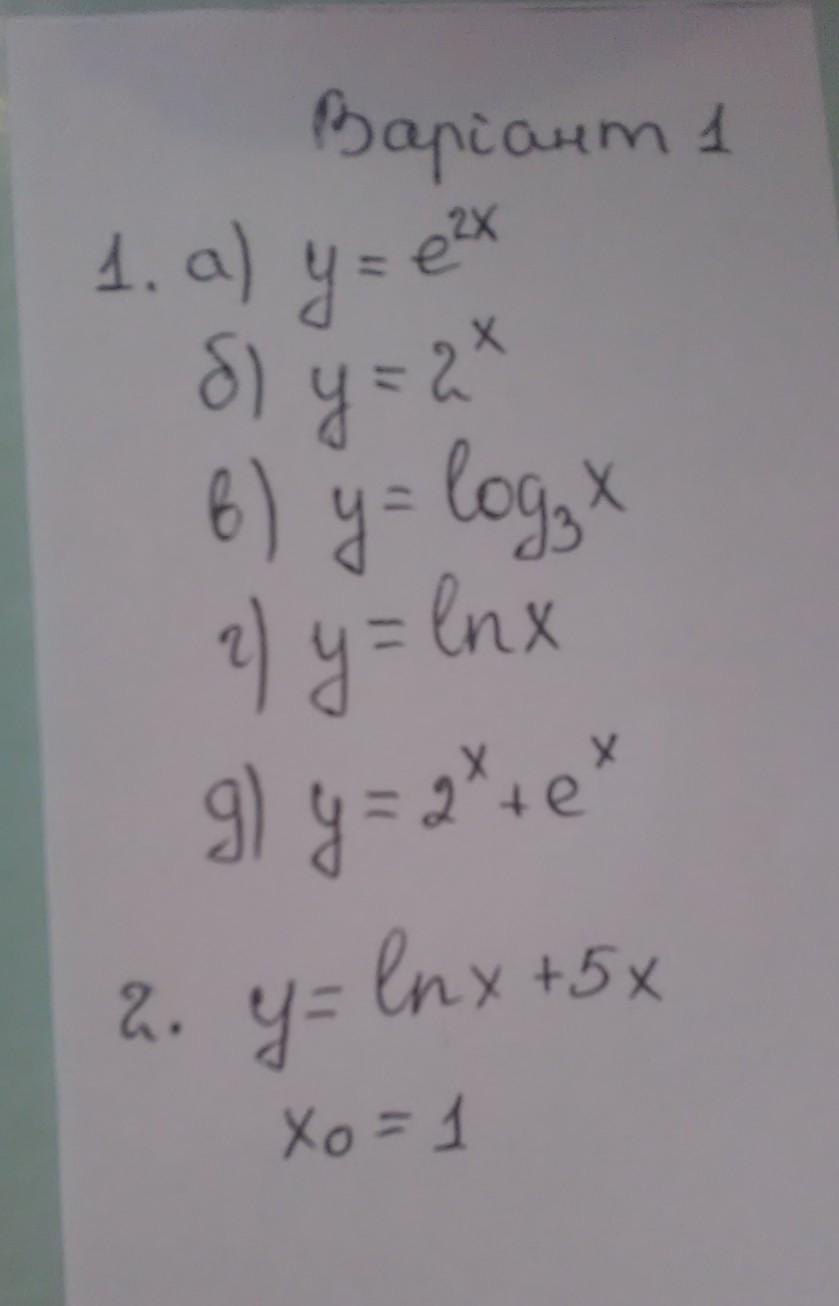 Варіант 1
1. а) y = e^{2x}
б) y = 2^x
в) y = log₃x
г) y = lnx
д) y = 2^x + e^x
2. y = lnx + 5x
x₀ = 1